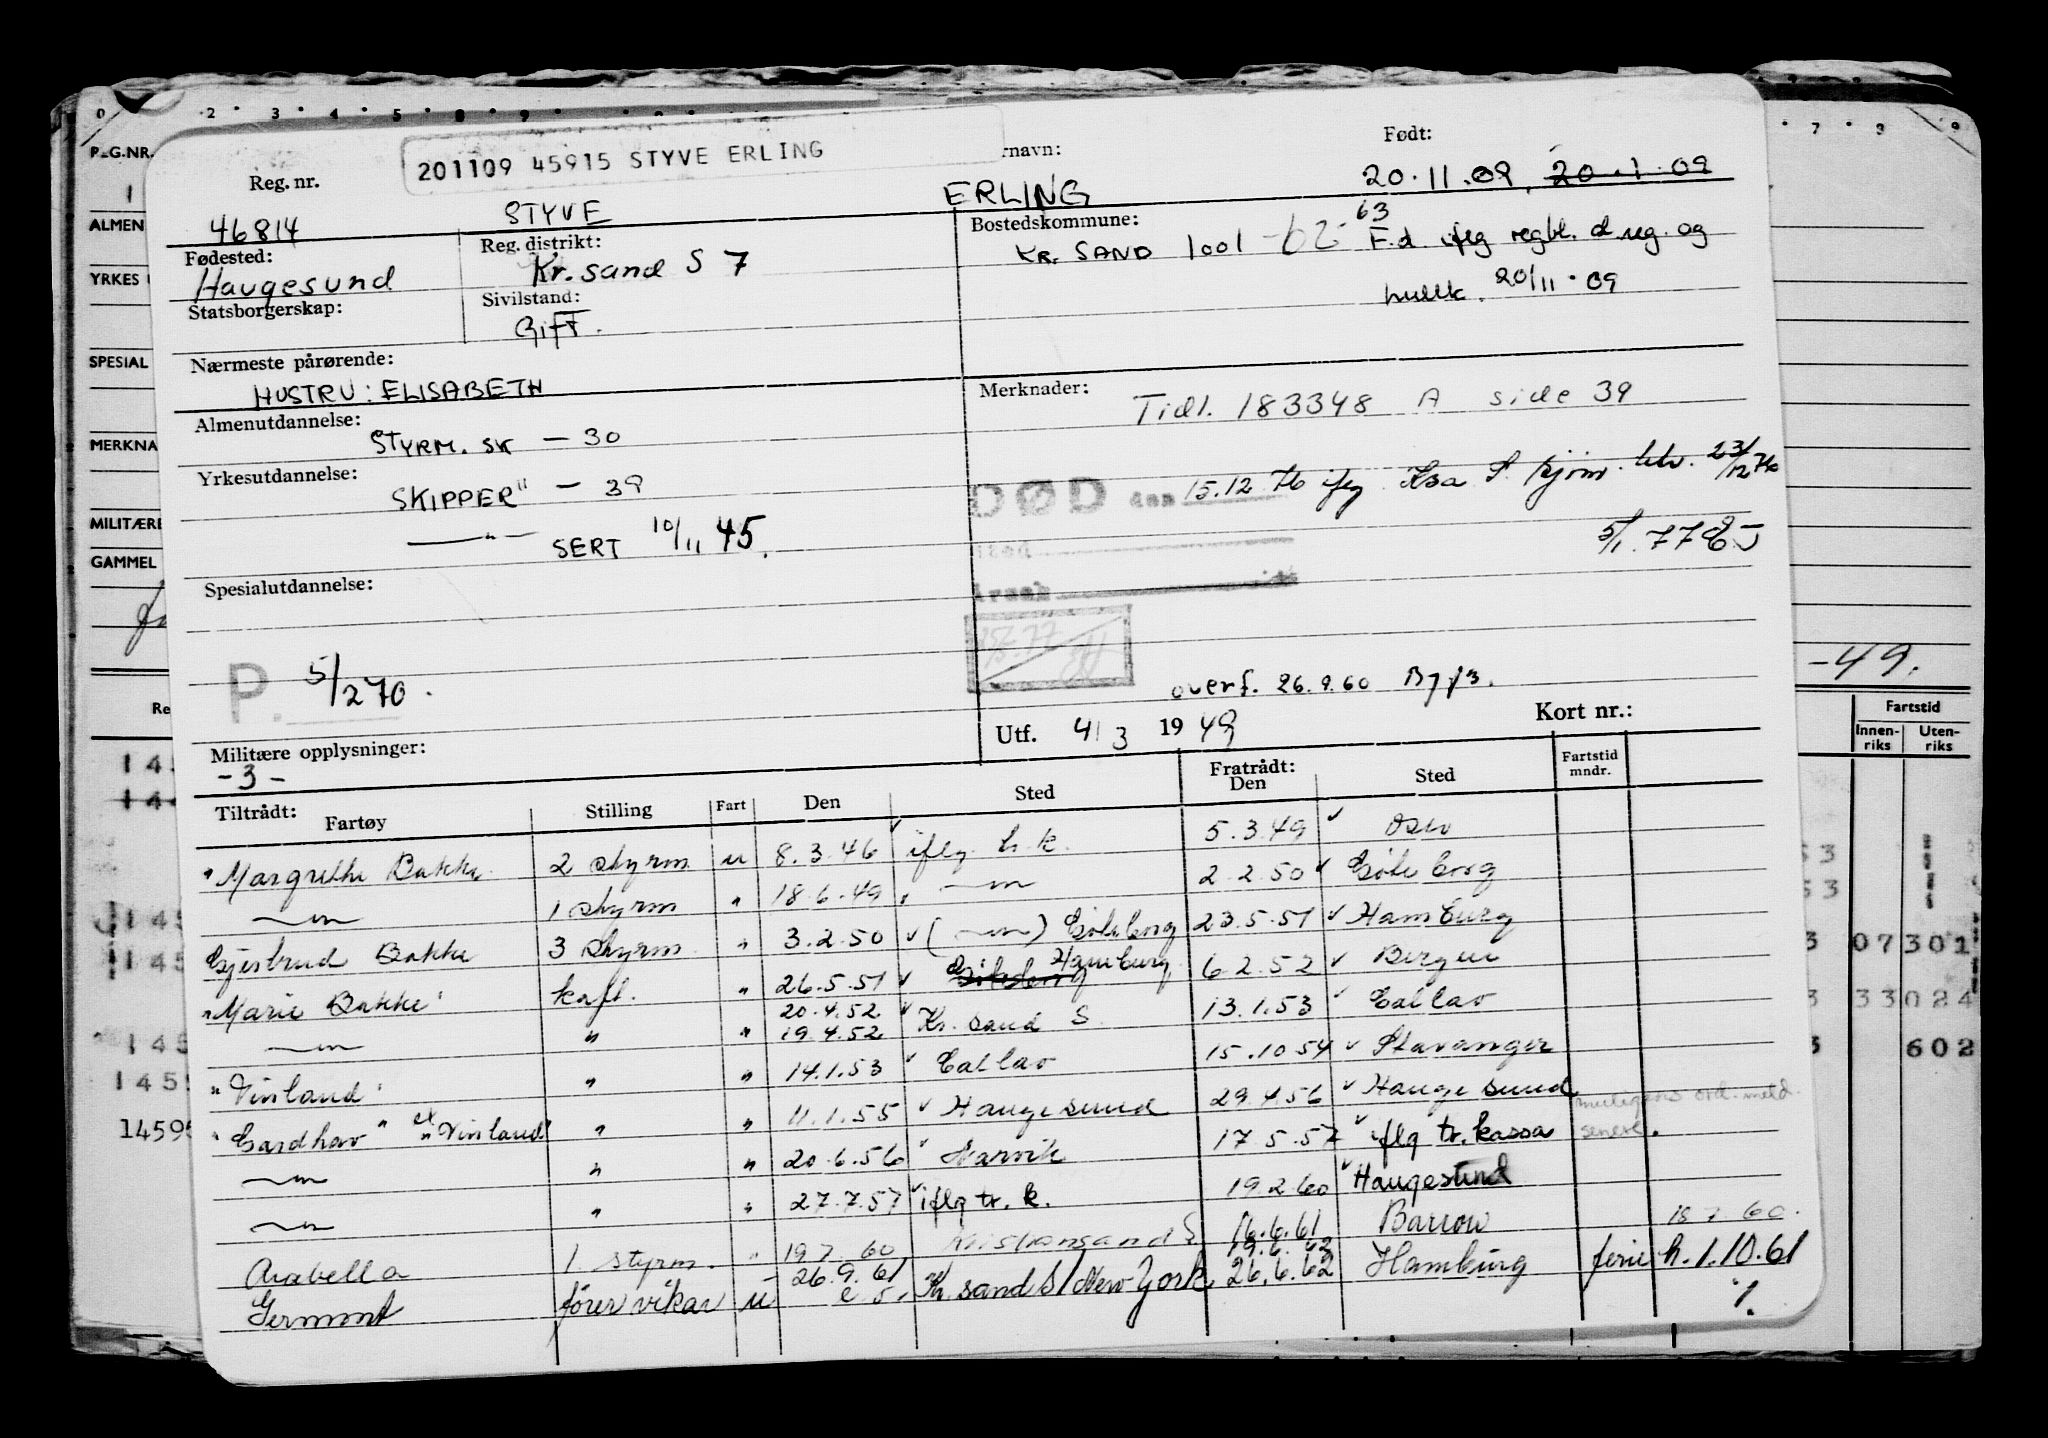 0 · 2 · 3 · 4 · 5 · 8 · 9 7 · 8 · 9
201109 45915 STYVE ERLING
Reg. nr. rnavn: Født:
46814 STYVE ERLING 20.11.09. 20.1.09
Fødested: Reg. distrikt: Bostedskommune:
Haugesund Kr. sand S 7 KR. SAND 1001 -62- 63 F.d. iflg regbl. d.reg. og
20/11-09
Statsborgerskap: Sivilstand:
Gift.
Nærmeste pårørende:
HUSTRU: ELISABETH
Merknader:
Tidl. 183348 A side 39
Almenutdannelse:
STYRM. SK - 30
Yrkesutdannelse:
SKIPPER " - 39
—"— SERT 10/11 45.
DØD den 15.12 76 iflg Ksa S 23/12 76
5/1. 77
Spesialutdannelse:
P. 5/2 70.
overf. 26.9.60
Utf. 4/3 1949 Kort nr.:
Militære opplysninger:
-3-
Tiltrådt: Fartøy Stilling Fart Den Sted Fratrådt: Den Sted Fartstid mndr.
"Margrethe Bakke 2 styrm u 8.3.46 iflg. h.k. 5.3.49 Oslo
—"— 1 styrm " 18.6.49 " —"— 2.2.50 Göteborg
Gjertrud Bakke 3 styrm " 3.2.50 (—"—) Göteborg 23.5.51 Hamburg
"Marie Bakke" kaft. " 26.5.51 Göteborg Hamburg 6.2.52 Bergen
—"— " " 20.4.52 19.4.52 Kr. sand S. 13.1.53 Callao
"Vinland" " " 14.1.53 Callao 15.10.54 Stavanger
"Gardhav" ex "Vinland" " " 11.1.55 Haugesund 29.4.56 Haugesund
—"— " " 20.6.56 Narvik 17.5.57 iflg tr. kassa senere.
—"— " " 27.7.57 iflg tr. k. 19.2.60 Haugesund
Arabella 1. styrm. " 19.7.60 Kristiansand S 16.6.61 Barrow 18.7.60.
Germont fører vikar u 26.9.61 Kr. sand S/New York 19.6.62 26.6.62 Hamburg ferie h. 1.10.61
ALMEN
YRKES
SPESIAL
MERKNA
MILITÆRE
GAMMEL
-49.
Fartstid
Innen-riks Uten-riks
07 301
33 024
602
14595